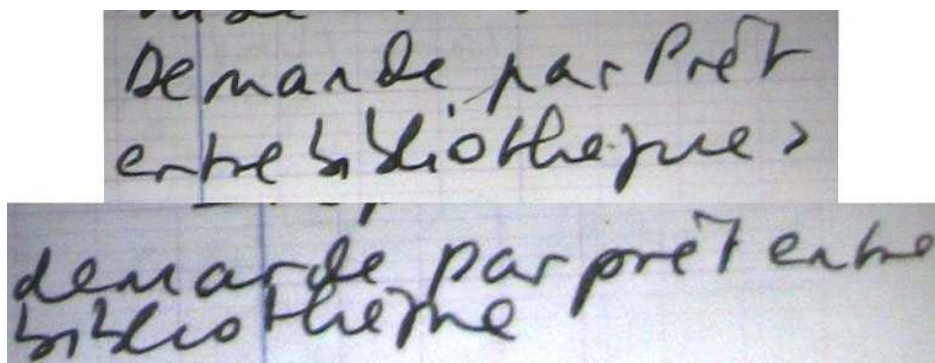 Demande par Prêt
entre bibliothèques
demande par prêt entre
bibliothèque